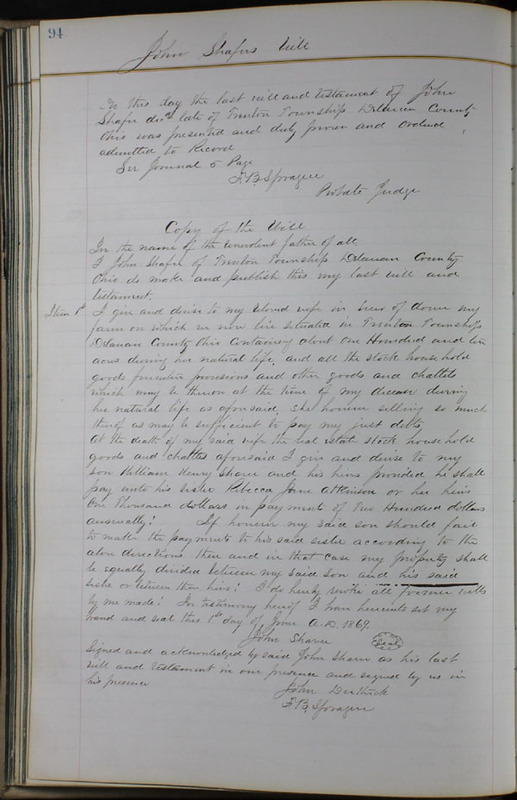 94
John Shafers Will
On this day the last will and testament of John
Shafer decd late of Trenton Township Delaware County
Ohio was presented and duly proven and Ordered
admitted to Record
See Journal 5 Page
F. B. Sprague
Probate Judge
Copy of the Will
In the name of the benevolent father of all
I John Shafer of Trenton Township Delaware County
Ohio do make and publish this my last will and
testament.
Item 1st I give and devise to my beloved wife in lieu of dower my
farm on which we now live situated in Trenton Township
Delaware County Ohio Containing about One Hundred and ten
acres during her natural life, and all the stock household
goods furniture provisions and other goods and chattels
which may be thereon at the time of my decease during
her natural life as aforesaid, she however selling so much
thereof as may be sufficient to pay my just debts,
At the death of my said wife the real estate stock household
goods and chattles aforesaid I give and devise to my
son William Henry Sharer and his heirs provided he shall
pay unto his sister Rebecca Jane Atkinson or her heirs
One Thousand dollars in payments of Two Hundred dollars
annually! If however my said son should fail
to make the payments to his said sister according to the
above directions then and in that case my property shall
be equally divided between my said son and his said
sister or between their heirs! I do hereby revoke all former wills
by me made! In testimony hereof I have hereunto set my
hand and seal this 1st day of June A.D. 1869.
John Sharer Seal
Signed and acknowledged by said John Sharer as his last
will and testament in our presence and signed by us in
his presence
John
F. B. Sprague